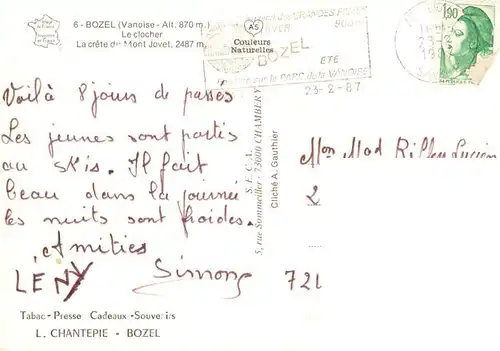 6 - BOZEL (Vanoise - Alt. 870 m.)
Le clocher
La crête du Mont Jovet, 2487 m.
AS
Couleurs
Naturelles
BOZEL
ETE
PARC de la VANOISE
23-2-87
1,90
Voilà 8 jours de passés
Les jeunes sont partis
au skis. Il fait
beau dans la journée
les nuits sont froides.
Amitiés
LENY Simone
S.E.C.A.
5, rue Sommeiller - 73000 CHAMBERY
Cliché A. Gauthier
Mon Mad Lucien
2
72
Tabac - Presse Cadeaux - Souvenirs
L. CHANTEPIE - BOZEL